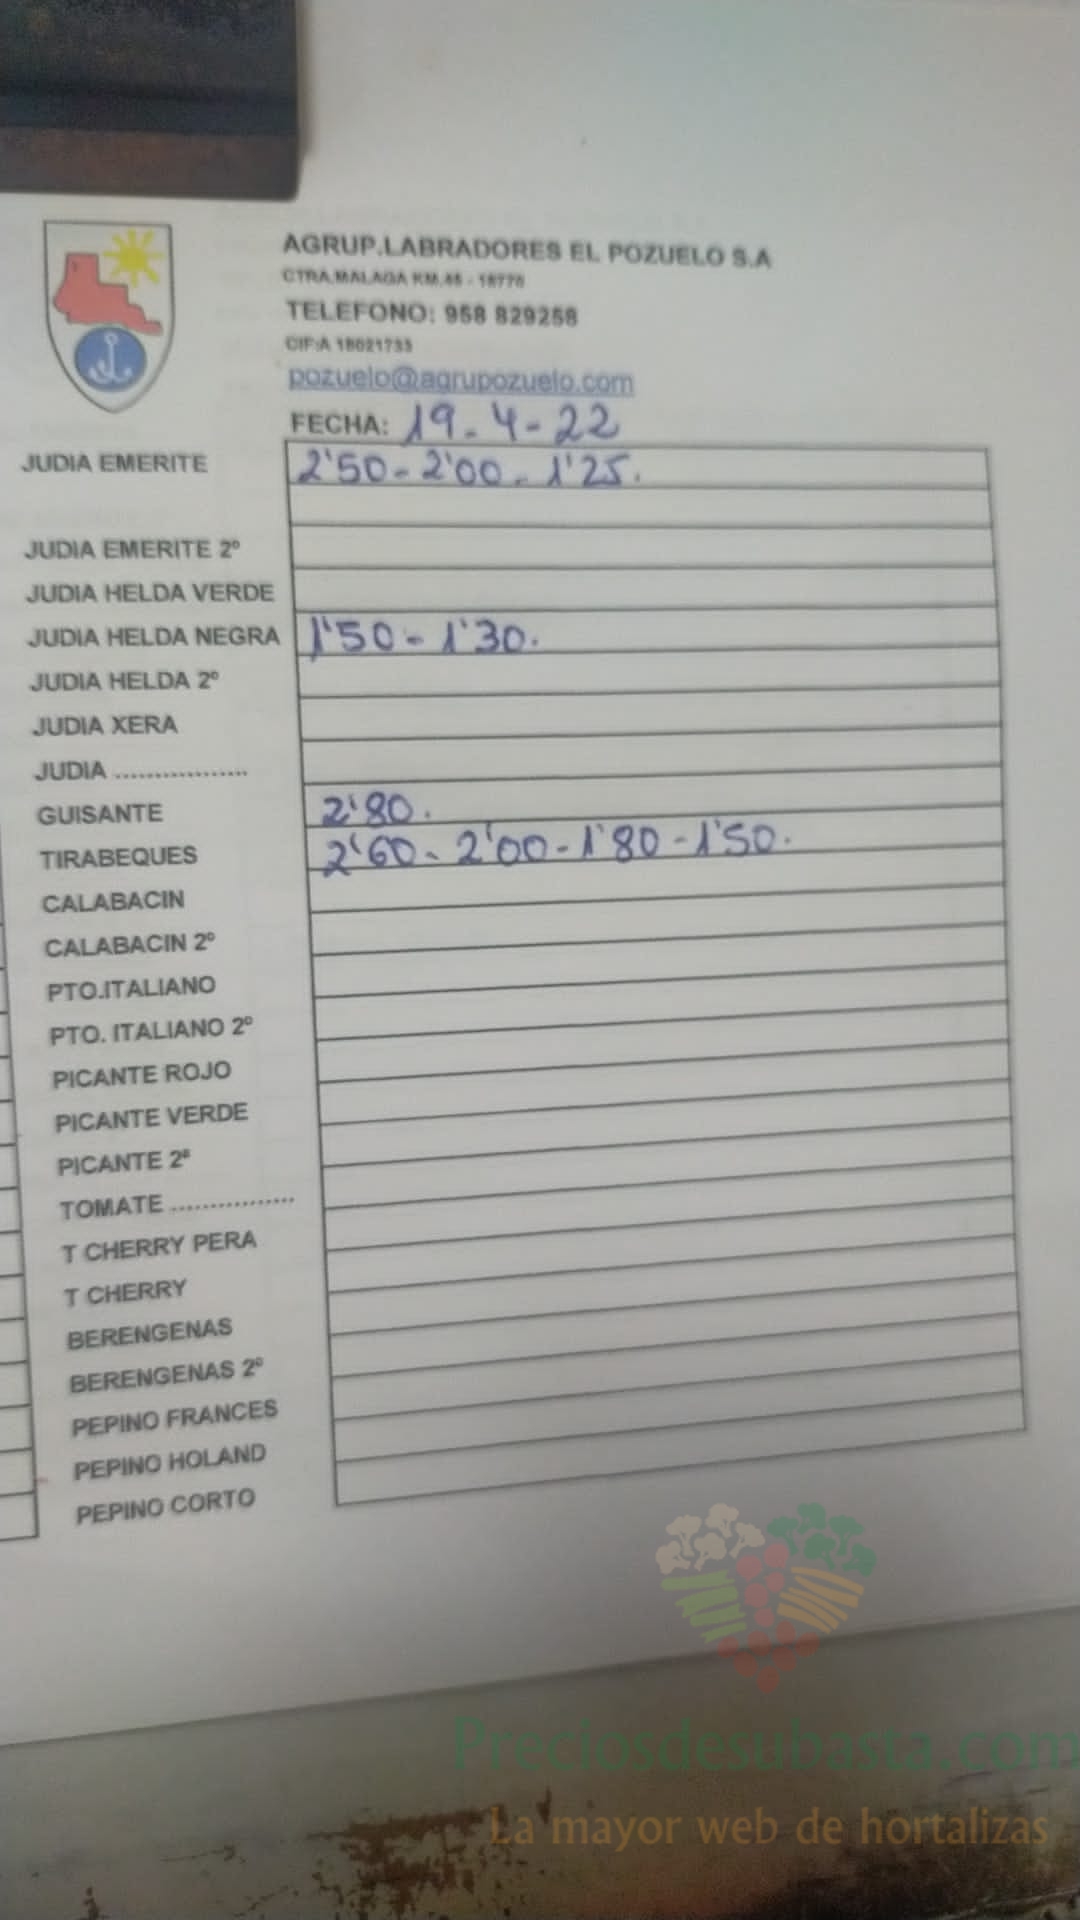 AGRUP.LABRADORES EL POZUELO S.A
CTRA.MALAGA KM.45 - 18770
TELEFONO: 958 829258
CIF:A 18021733
pozuelo@agrupozuelo.com
FECHA: 19-4-22
JUDIA EMERITE 2'50-2'00-1'25.
JUDIA EMERITE 2º
JUDIA HELDA VERDE
JUDIA HELDA NEGRA 1'50-1'30.
JUDIA HELDA 2º
JUDIA XERA
JUDIA .................
GUISANTE 2'80.
TIRABEQUES 2'60-2'00-1'80-1'50.
CALABACIN
CALABACIN 2º
PTO.ITALIANO
PTO. ITALIANO 2º
PICANTE ROJO
PICANTE VERDE
PICANTE 2ª
TOMATE ................
T CHERRY PERA
T CHERRY
BERENGENAS
BERENGENAS 2º
PEPINO FRANCES
PEPINO HOLAND
PEPINO CORTO
Preciosdesubasta.com
La mayor web de hortalizas